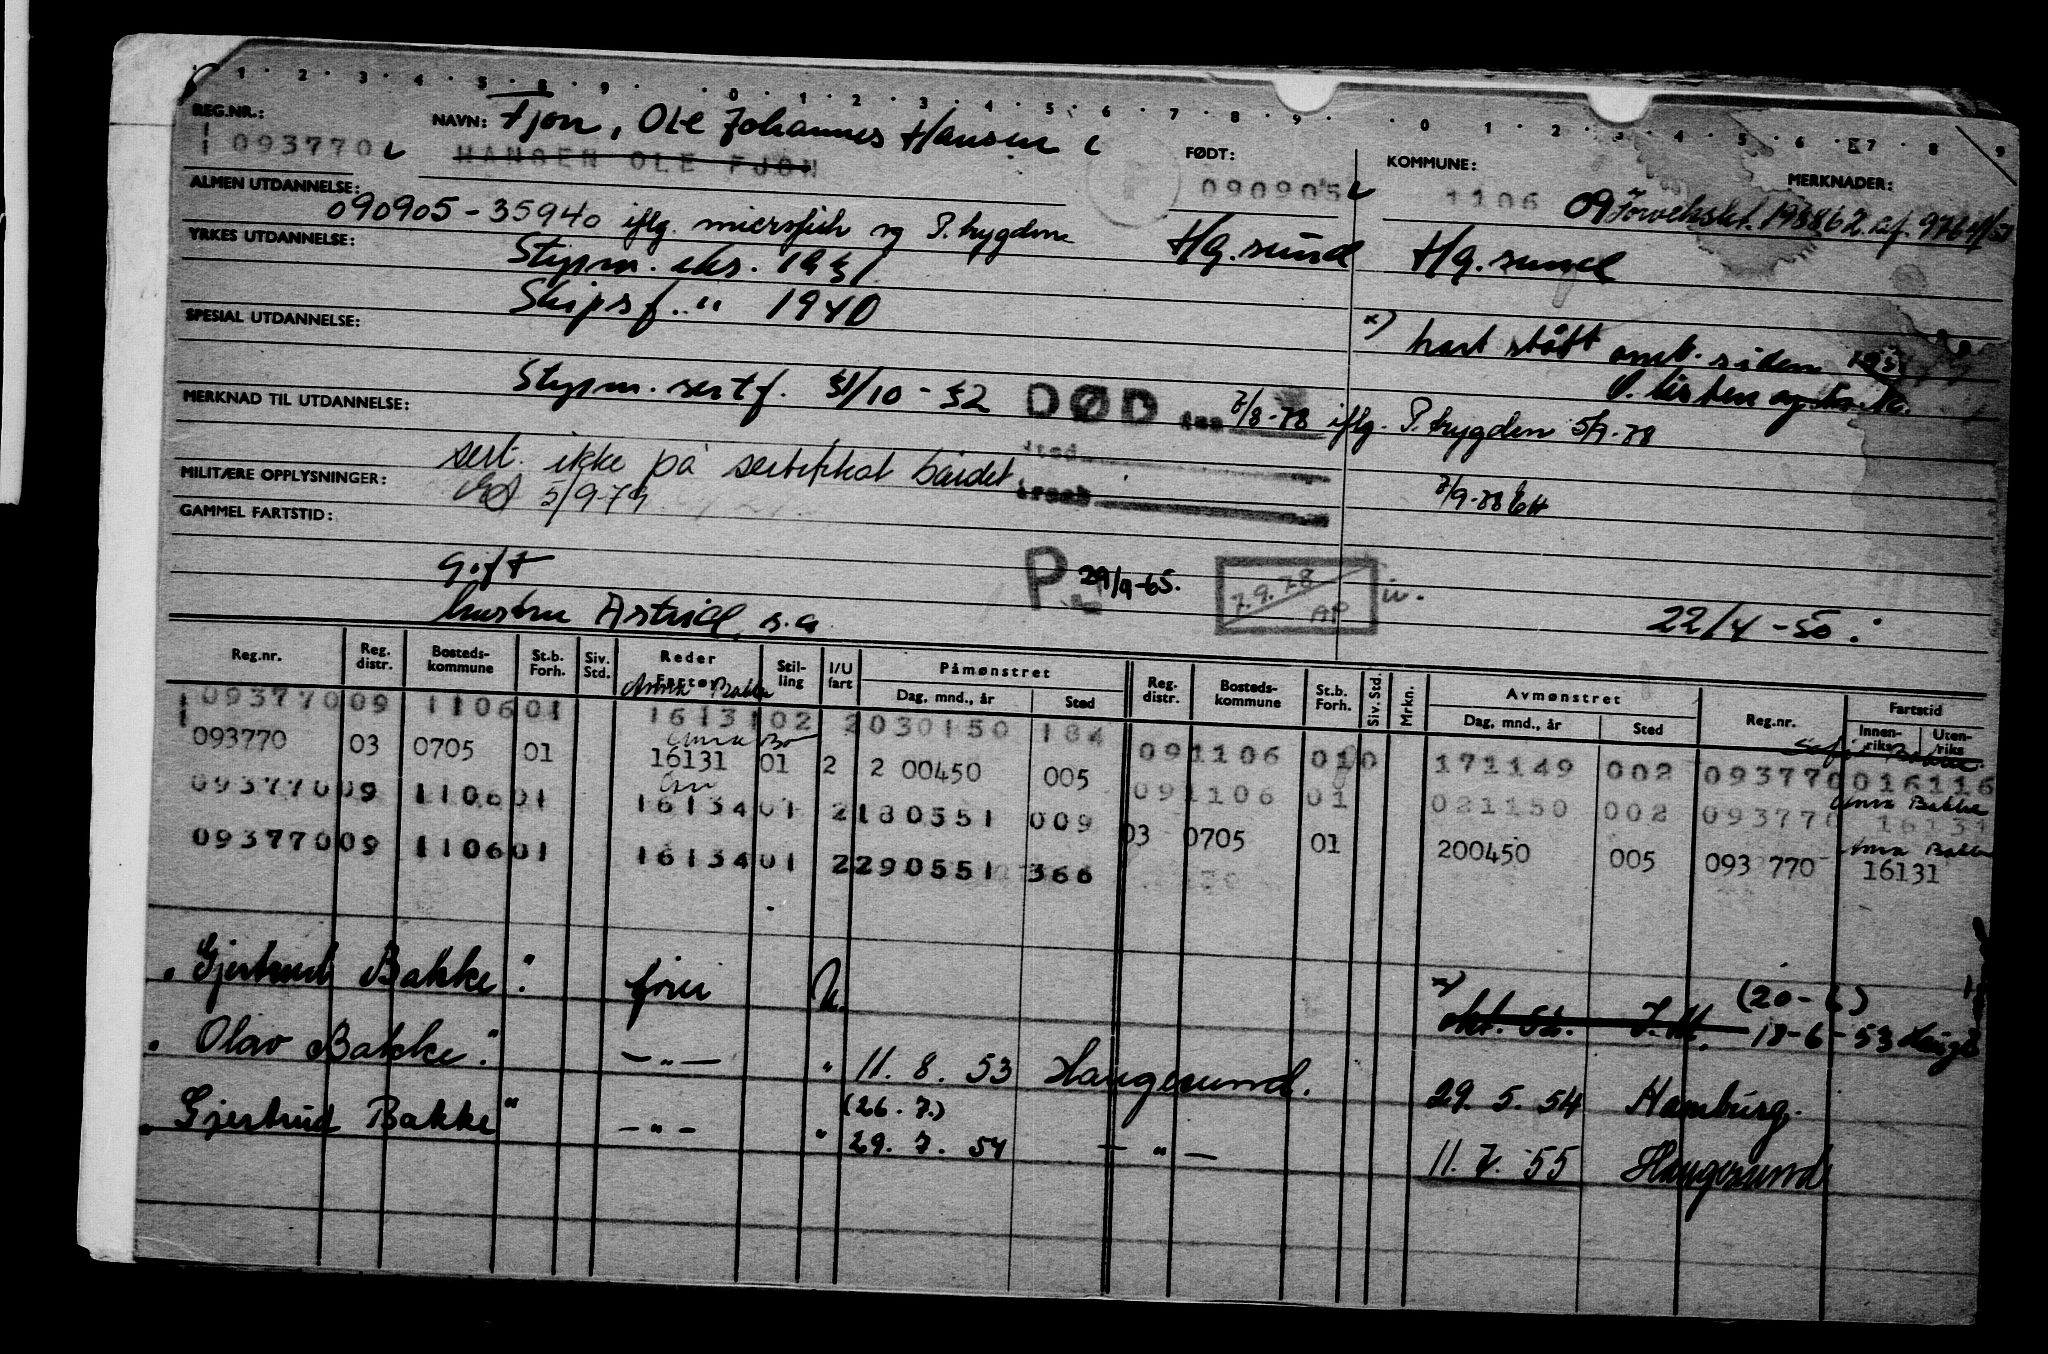 1 2 3 4 5 8 9 0 1 2 3 4 5 6 7 8 9 0 1 2 3 4 5 6 7 8 9
REG.NR.: NAVN: Fjon, Ole Johannes Hansen
093770 HANSEN OLE FJON FØDT: 090905 KOMMUNE: 1106 09 MERKNADER:
ALMEN UTDANNELSE: 090905-35940 iflg. microfich og P. trygden
YRKES UTDANNELSE: Styrm. eks. 1931 Hg.sund Hg.sund
Skipsf. " 1940
SPESIAL UTDANNELSE:
x) hart stått omb. siden
Styrm. sertf. 31/10-32
MERKNAD TIL UTDANNELSE: DØD 7/8-78 iflg. P. trygden 5/9-78
sert. ikke på sertifikat båndet
MILITÆRE OPPLYSNINGER: 5/9-79
GAMMEL FARTSTID:
Gift P 29/9-65. 7.9.78 AP
hustru Astrid, s.a 22/4-50.
Reg.nr. Reg. distr. Bosteds-kommune St.b. Forh. Siv. Std. Reder Fartøy Stil-ling I/U fart Påmønstret Dag, mnd., år Sted Reg. distr. Bosteds-kommune St.b. Forh. Siv. Std. Mrkn. Avmønstret Dag, mnd., år Sted Reg.nr. Fartstid Innen-riks Uten-riks
093770 09 1106 01 16131 02 2 030150 184 09 1106 01 0 171149 002 093770 016116
093770 03 0705 01 16131 01 2 2 00450 005 09 1106 01 021150 002 093770 16131
Anna Bakke
093770 09 1106 01 16134 01 2 180551 009 03 0705 01 200450 005 093 770 16131
093770 09 1106 01 16134 01 2 290551 366
"Gjertrud Bakke" fører U. x) okt. 52. (20-6) 18-6-53
"Olav Bakke" —"— " 11. 8. 53 Haugesund. 29. 5. 54 Hamburg.
(26. 7.)
"Gjertrud Bakke" —"— " 29. 7. 54 —"— 11. 7. 55 Haugesund